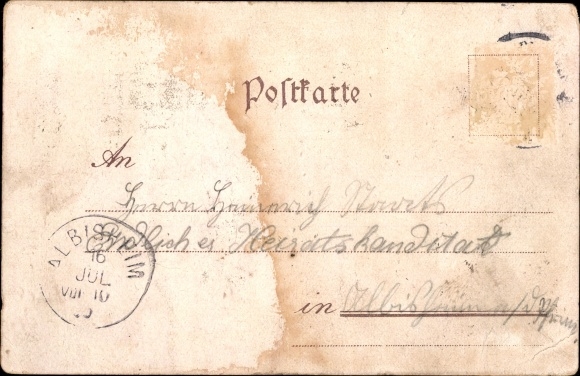 Postkarte
An
Herrn Heinrich
Heiratskanditat
in Albisheim a/d Pfrim
ALBISHEIM
16
JUL
VIII 10